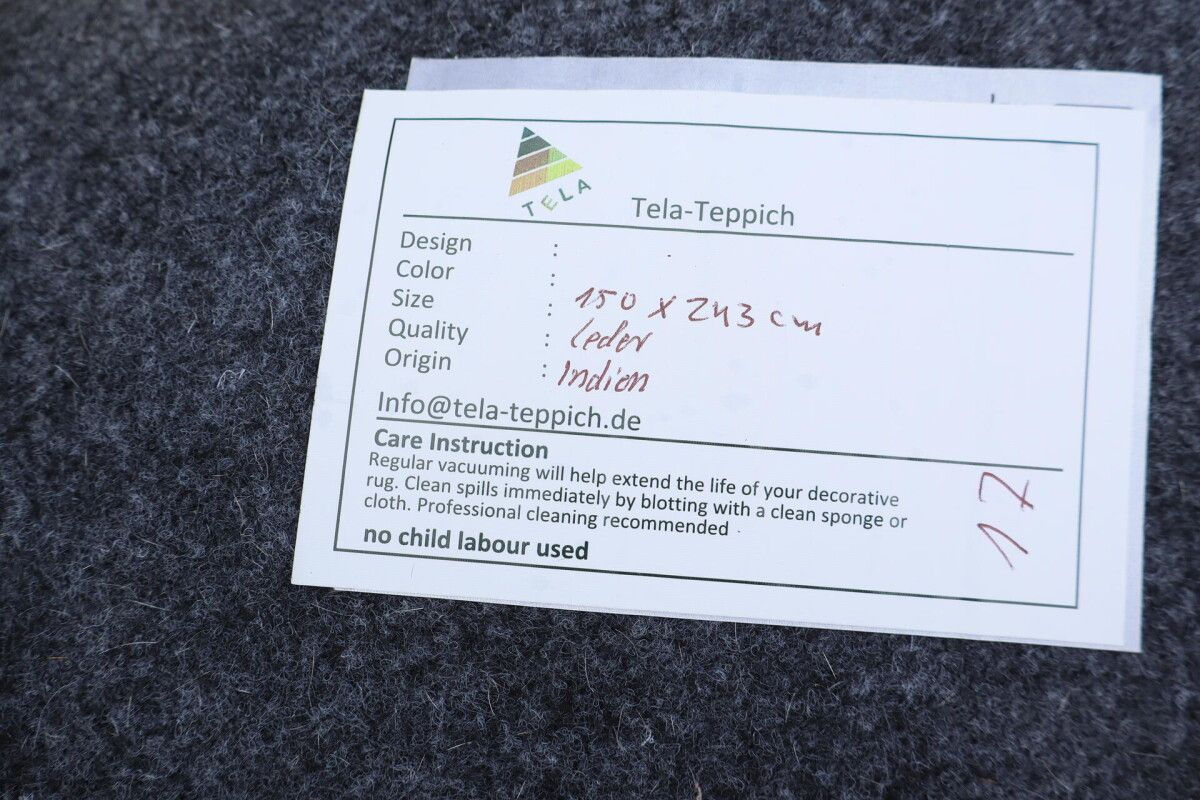 TELA
Tela-Teppich
Design :
Color :
Size : 150 x 243 cm
Quality : Leder
Origin : Indien
Info@tela-teppich.de
Care Instruction
Regular vacuuming will help extend the life of your decorative
rug. Clean spills immediately by blotting with a clean sponge or
cloth. Professional cleaning recommended
no child labour used
17